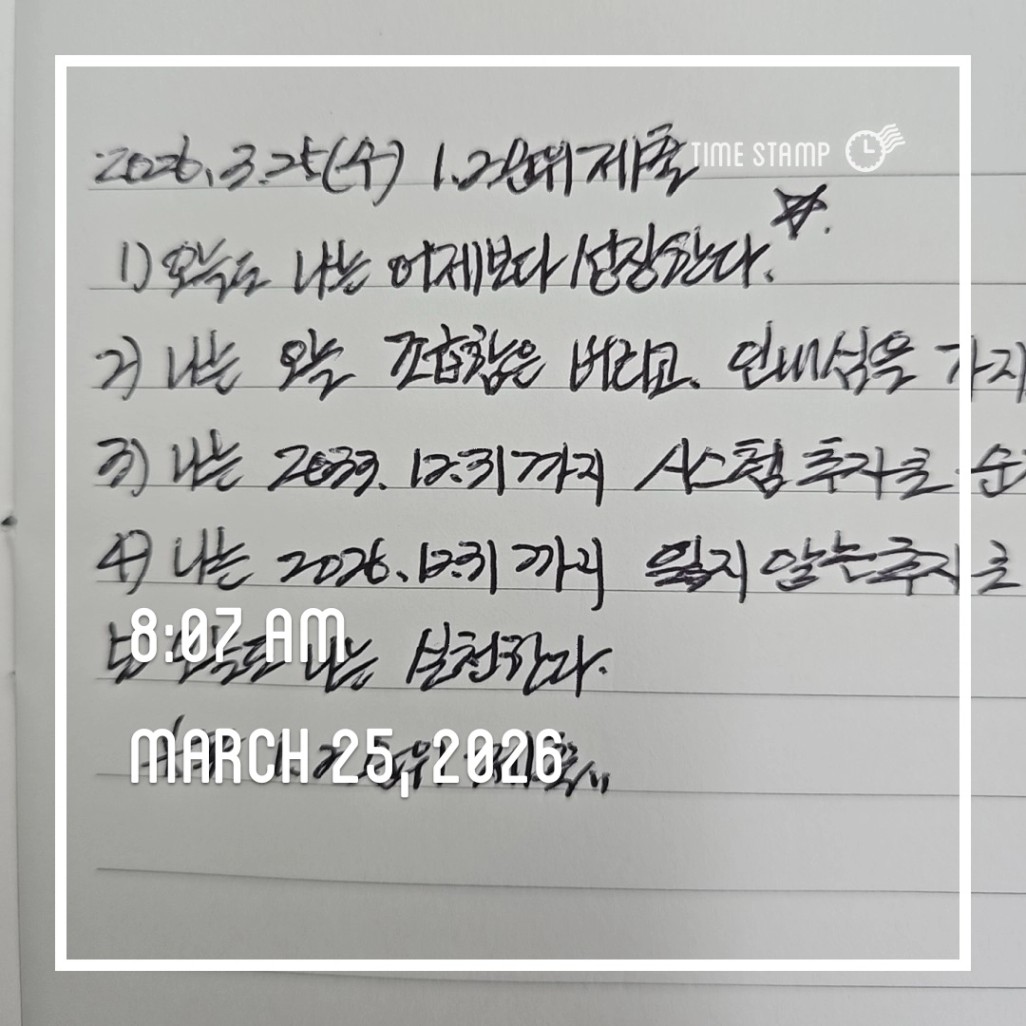 2026. 3. 25(수) 1.2순위 제출
TIME STAMP
1) 오늘도 나는 어제보다 성장한다.
2) 나는 오늘 조급함은 버리고. 인내심을 가지
3) 나는 2033. 12.31까지 시스템 투자로 순
4) 나는 2026. 12.31까지 잃지 않는 투자로
오늘도 나는 실천한다.
8:07 AM
MARCH 25, 2026